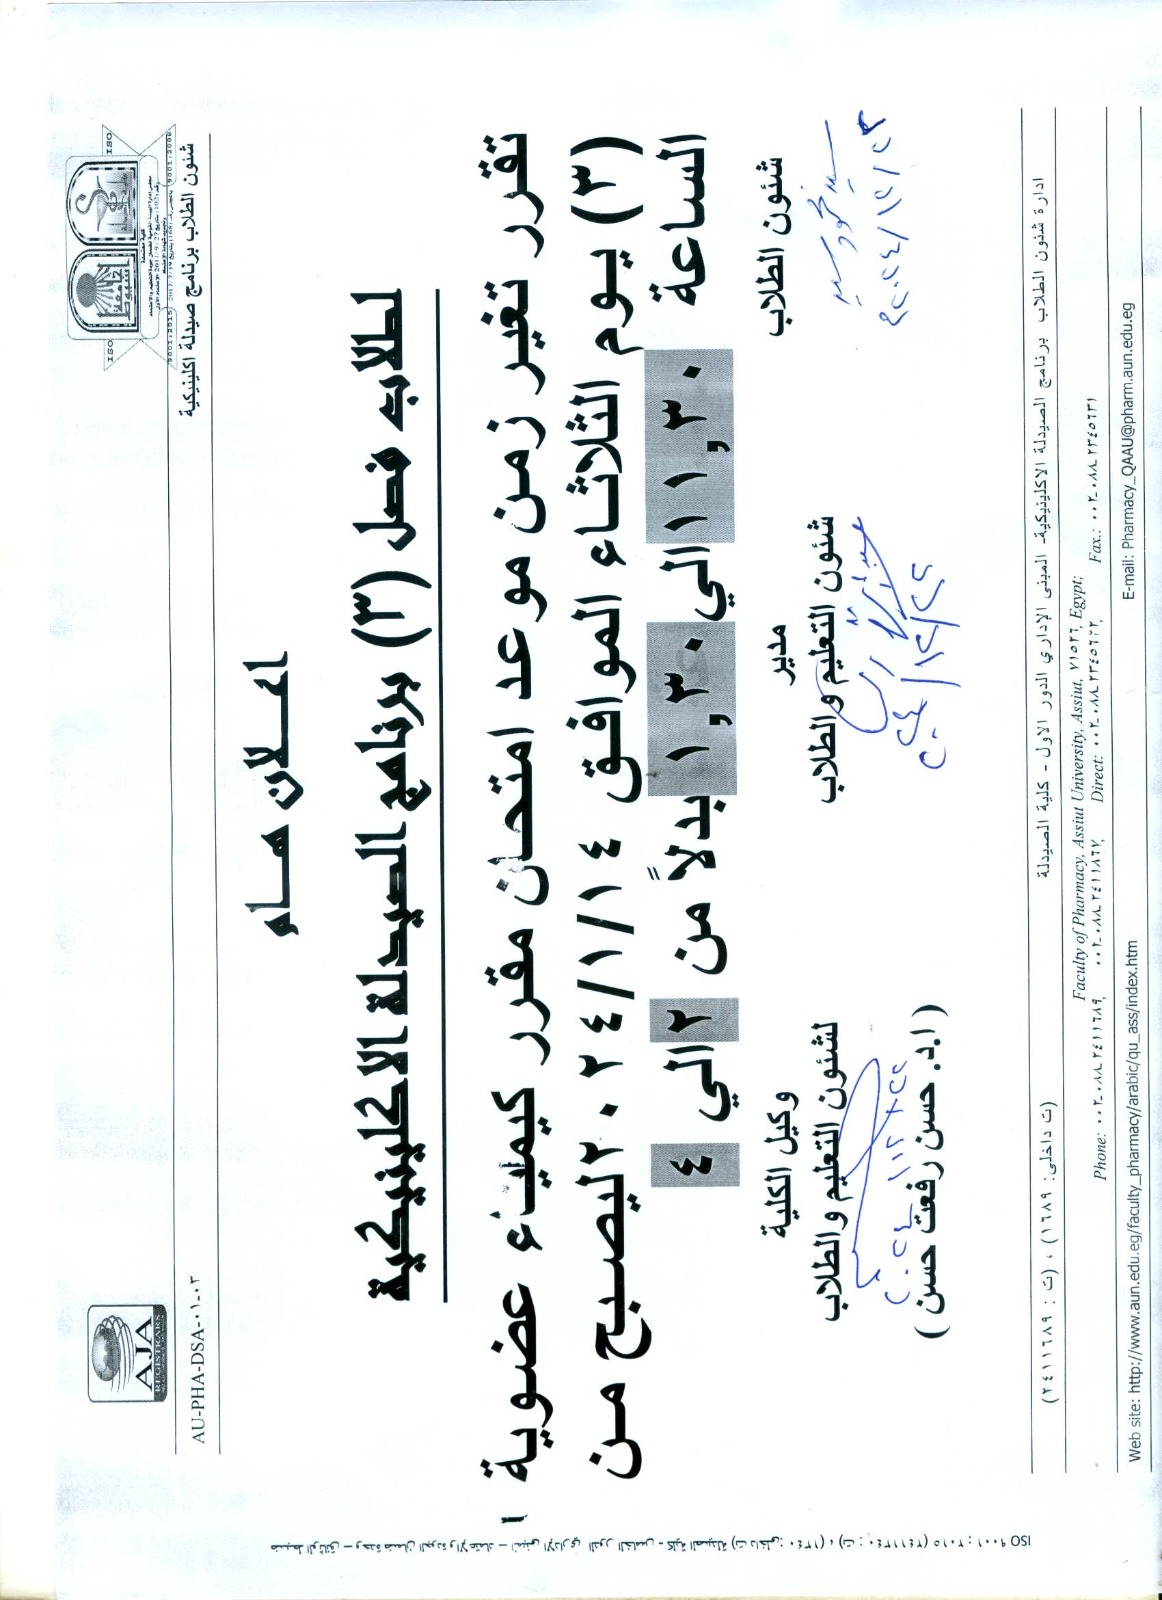 AJA
REGISTRARS
AU-PHA-DSA-٠١-٠٣
شئون الطلاب برنامج صيدلة اكلينيكية
اعــلان هــام
لطلاب فصل (٣) برنامج الصيدلة الاكلينيكية
تقرر تغير زمن موعد امتحان مقرر كيمياء عضوية
(٣) يوم الثلاثاء الموافق ٢٠٢٤/١/١٤ ليصبح من
الساعة ١١,٣٠ الي ١,٣٠ بدلاً من ٢ الي ٤
شئون الطلاب
مدير
شئون التعليم والطلاب
وكيل الكلية
لشئون التعليم والطلاب
(ا.د. حسن رفعت حسن)
ادارة شئون الطلاب برنامج الصيدلة الاكلينيكية- المبنى الإداري الدور الاول - كلية الصيدلة
(ت داخلى: ١٦٨٩) ، (ت : ٢٤١١٦٨٩)
Faculty of Pharmacy, Assiut University, Assiut, ٧١٥٢٦, Egypt;
Phone: ٠٠٢-٠٨٨-٢٤١١٦٨٩, ٠٠٢-٠٨٨-٢٤١١٨٦٧, Direct: ٠٠٢-٠٨٨-٢٣٤٥٦٢٢, Fax.: ٠٠٢-٠٨٨-٢٣٤٥٦٣١
Web site: http://www.aun.edu.eg/faculty_pharmacy/arabic/qu_ass/index.htm E-mail: Pharmacy_QAAU@pharm.aun.edu.eg